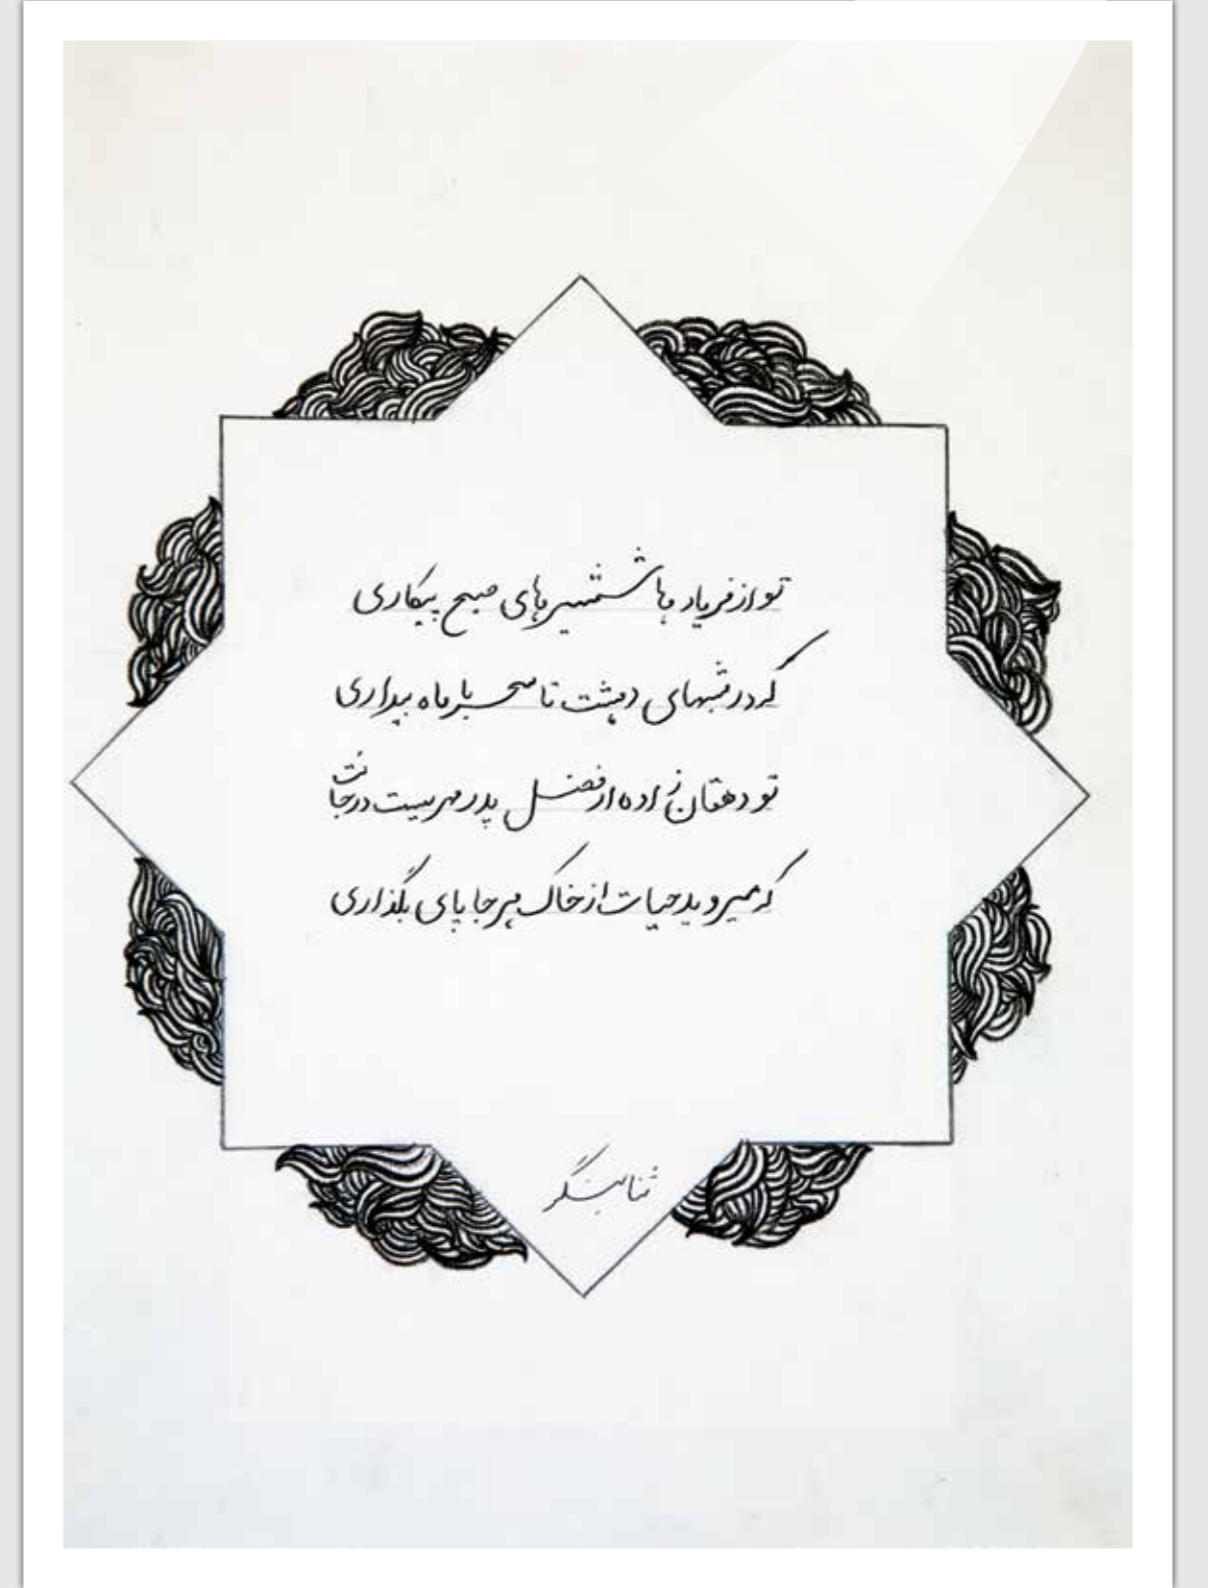 تو از فریاد ها شمشیر های صبح پیکاری
که در شبهای دهشت تا سحر با ماه بیداری
تو دهقان زاده از فضل پدر مهریست در جانت
که میروید حیات از خاک هر جا پای بگذاری